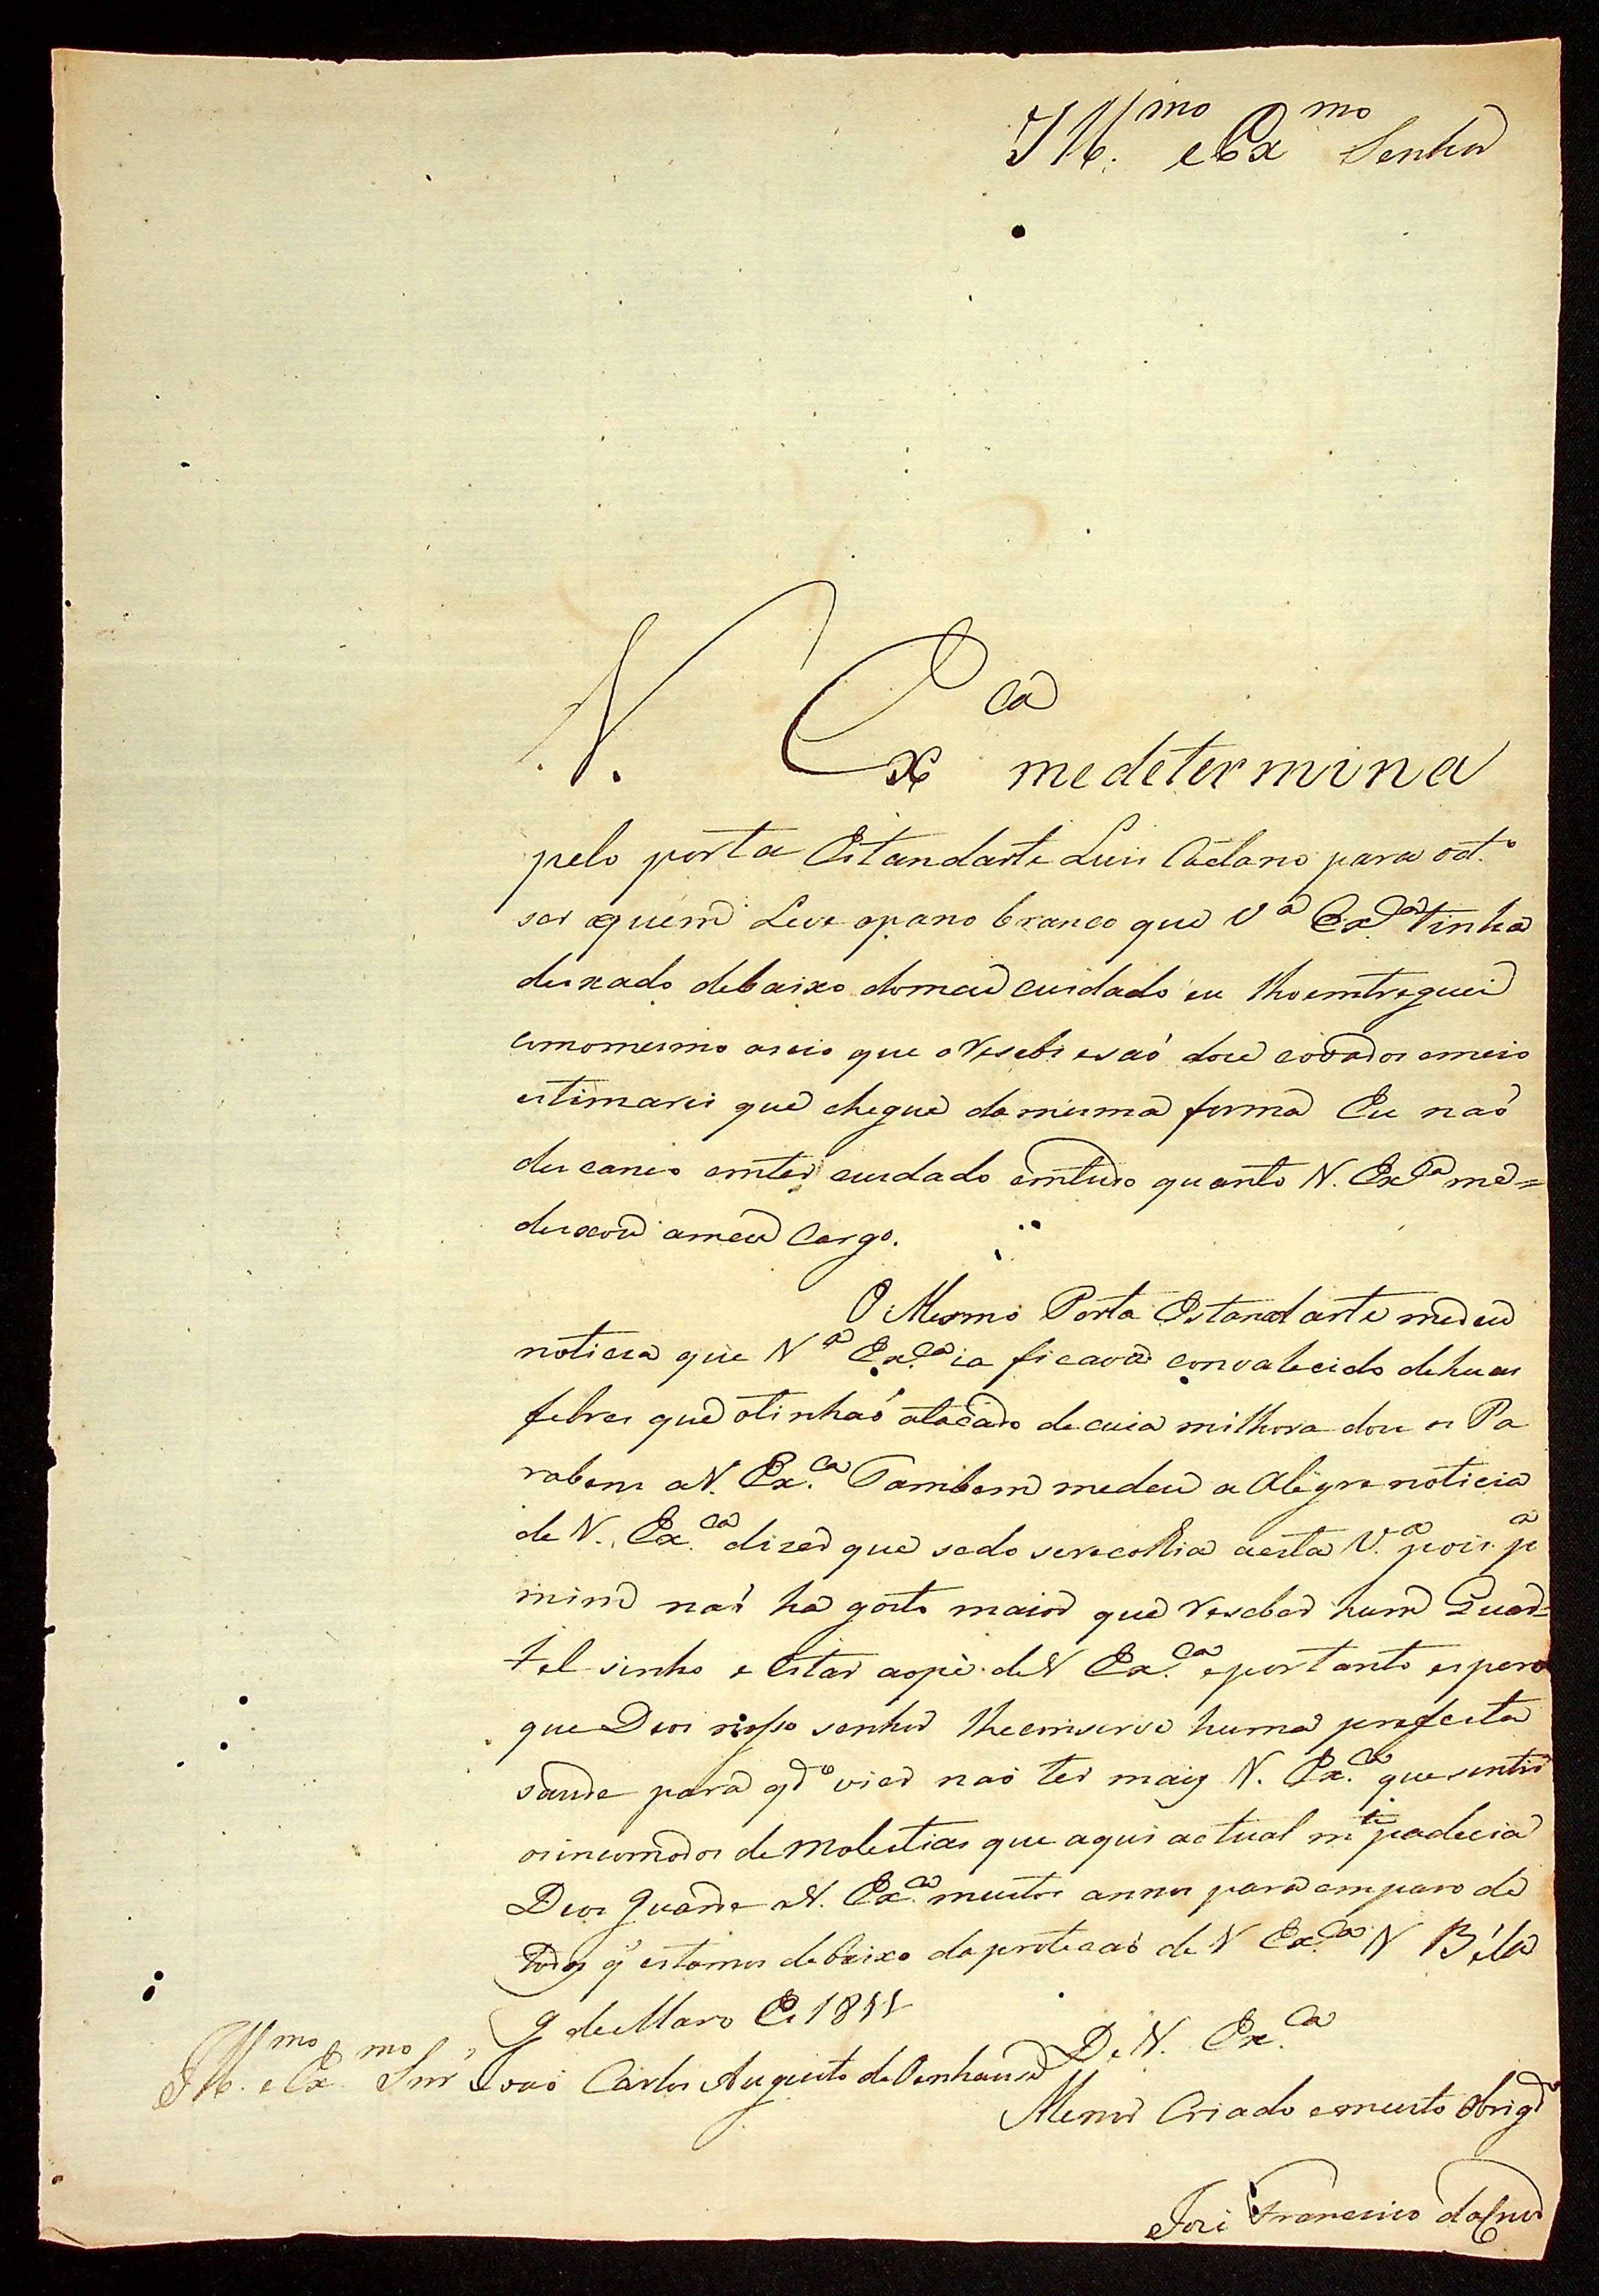 Ill.mo e Ex.mo Senhor
V. Ex.ca me determina
pelo porta Estandarte Luis Caetano para o d.o
ser quem Leve o pano branco que V.a Ex.ca tinha
deixado debaixo do meu cuidado eu lho emtreguei
com o mesmo aseio que o resebi e saó doze covados e meio
estimarei que chegue da mesma forma Eu naó
descanso em ter cuidado em tudo quanto V. Ex.ca me=
deixou a meu Cargo.
O Mesmo Porta Estandarte me deu
noticia que V.a Ex.ca ia ficava convalecido de huas
febres que o tinhaó atacado de cuia milhora dou os Pa
rabens a V. Ex.ca Tambem me deu a Alegre noticia
de V. Ex.ca dizer que sedo se recolhia a esta V.a pois p.a
mim naó ha gosto maior que reseber hum Quar=
tel sinho e Estar ao pè de V Ex.ca e portanto espero
que Deos nosso senhor lhe conserve huma prefeita
saude para q.do vier naó ter mais V. Ex.ca que sentir
os incomodos de molestias que aqui actual m.te padecia
Deos Guarde a V. Ex.ca muitos annos para emparo de
todos q' estamos debaixo da protecaó de V Ex.ca V Béla
9 de Marso de 1811
De V. Ex.ca
Ill.mo e Ex.mo Snr' Joaó Carlos Augusto de Oenhausen
Menor Criado e muito Obrig.do
José Francisco da Cruz